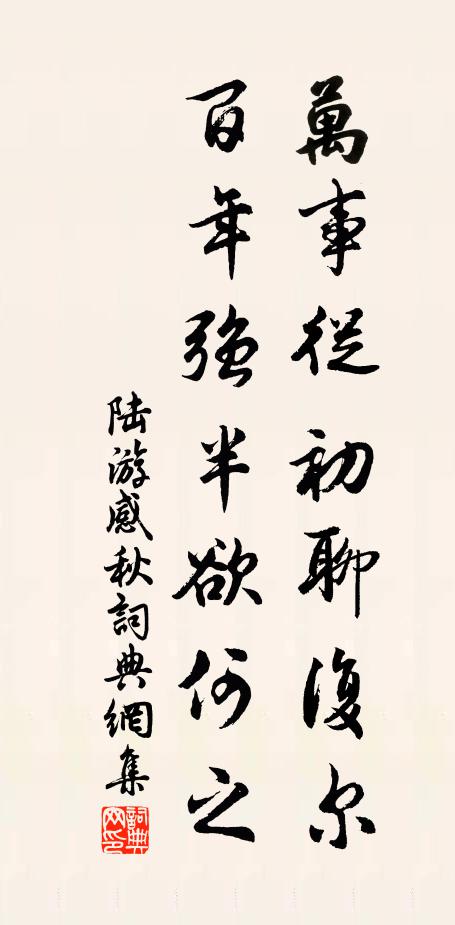 萬事從初聊復尔
百年強半欲何之
陆游感秋詞典網集
詞典網印